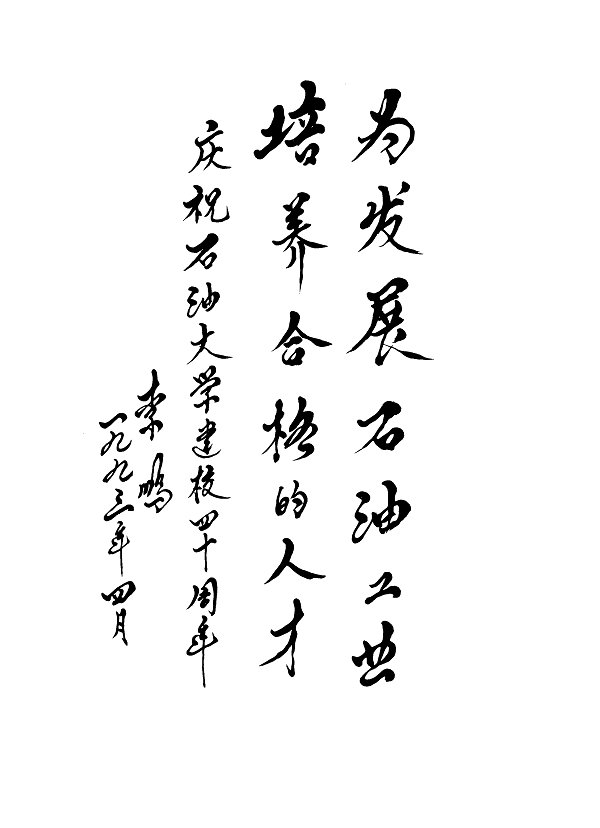 为发展石油工业
培养合格的人才
庆祝石油大学建校四十周年
李鹏
一九九三年四月